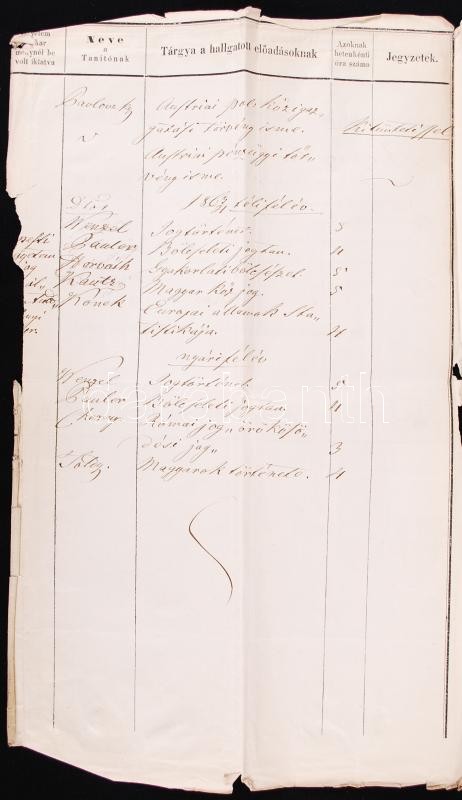 Neve
a
Tanítónak
Tárgya a hallgatott előadásoknak
Azoknak
hetenkénti
óra száma
Jegyzetek.
volt iktatva
Pavlovszky
Austriai pol. közigaz„
gatási törvényisme.
Kitüntetéssel
Austriai pénzügyi tör„
vényisme.
téli félév.
Wenzel Jogtörténet. 5
Pauler Bölcseleti jogtan. 4
Horváth Gyakorlati bölcsészet. 5
Kautz Magyar köz jog. 5
Konek Európai államok Sta„
tistikája. 4
nyári félév
Wenzel Jogtörténet 5
Pauler Bölcseleti jogtan. 4
Római jog„ örökösö„
dési jog„ 3
Toldy. Magyarok története. 4
darabanth